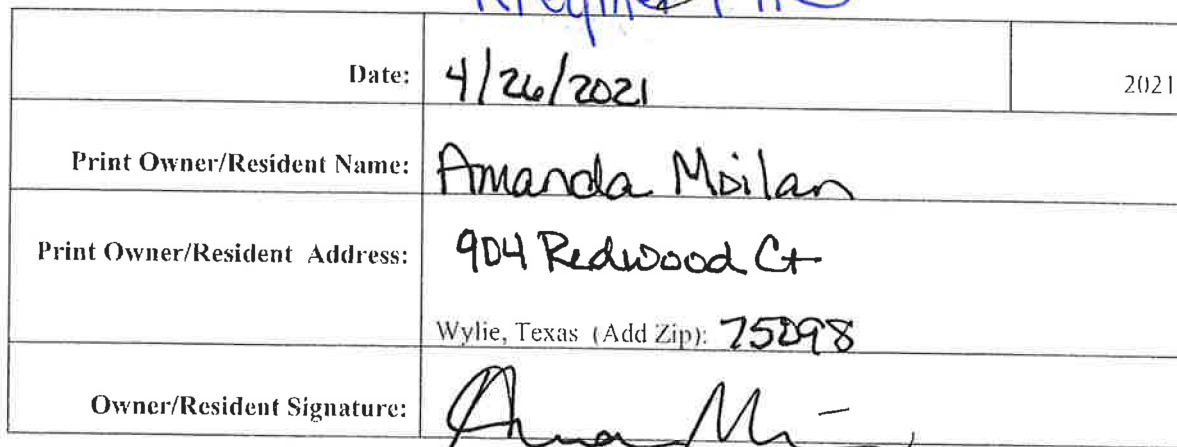 Date: 4/26/2021 2021
Print Owner/Resident Name: Amanda Moilan
Print Owner/Resident Address: 904 Redwood Ct
Wylie, Texas (Add Zip): 75098
Owner/Resident Signature: